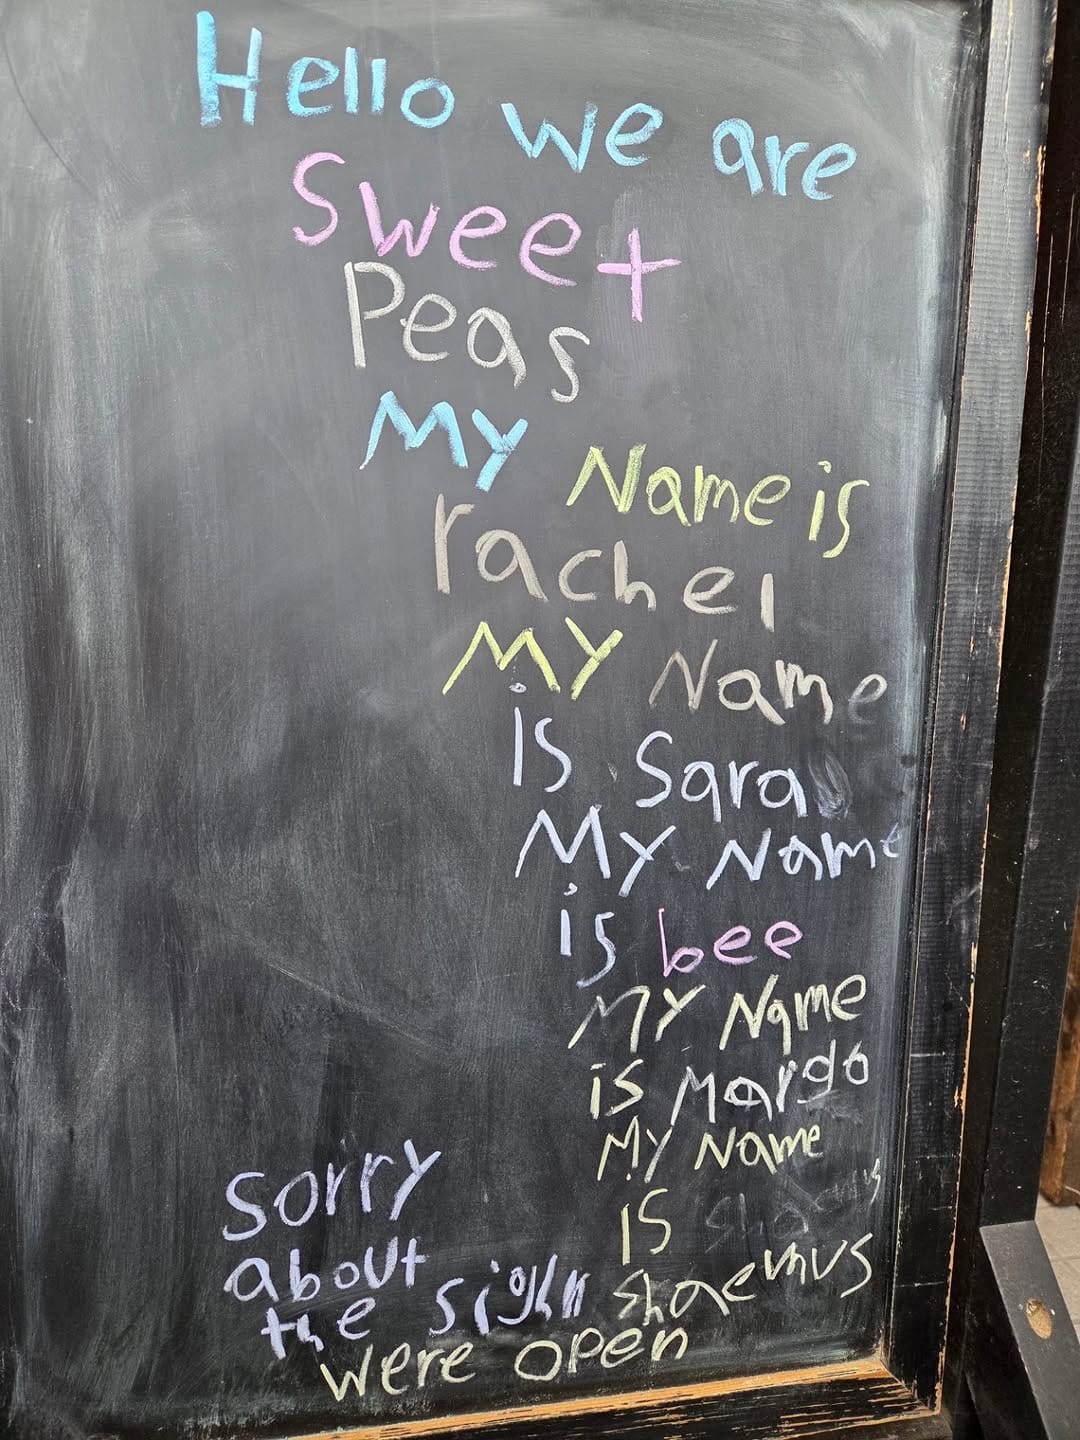 Hello we are
Sweet
Peas
My Name is
rachel
My Name
is Sara
My Name
is bee
My Name
is Margo
My Name
is
shaemus
sorry
about
the sign
were open